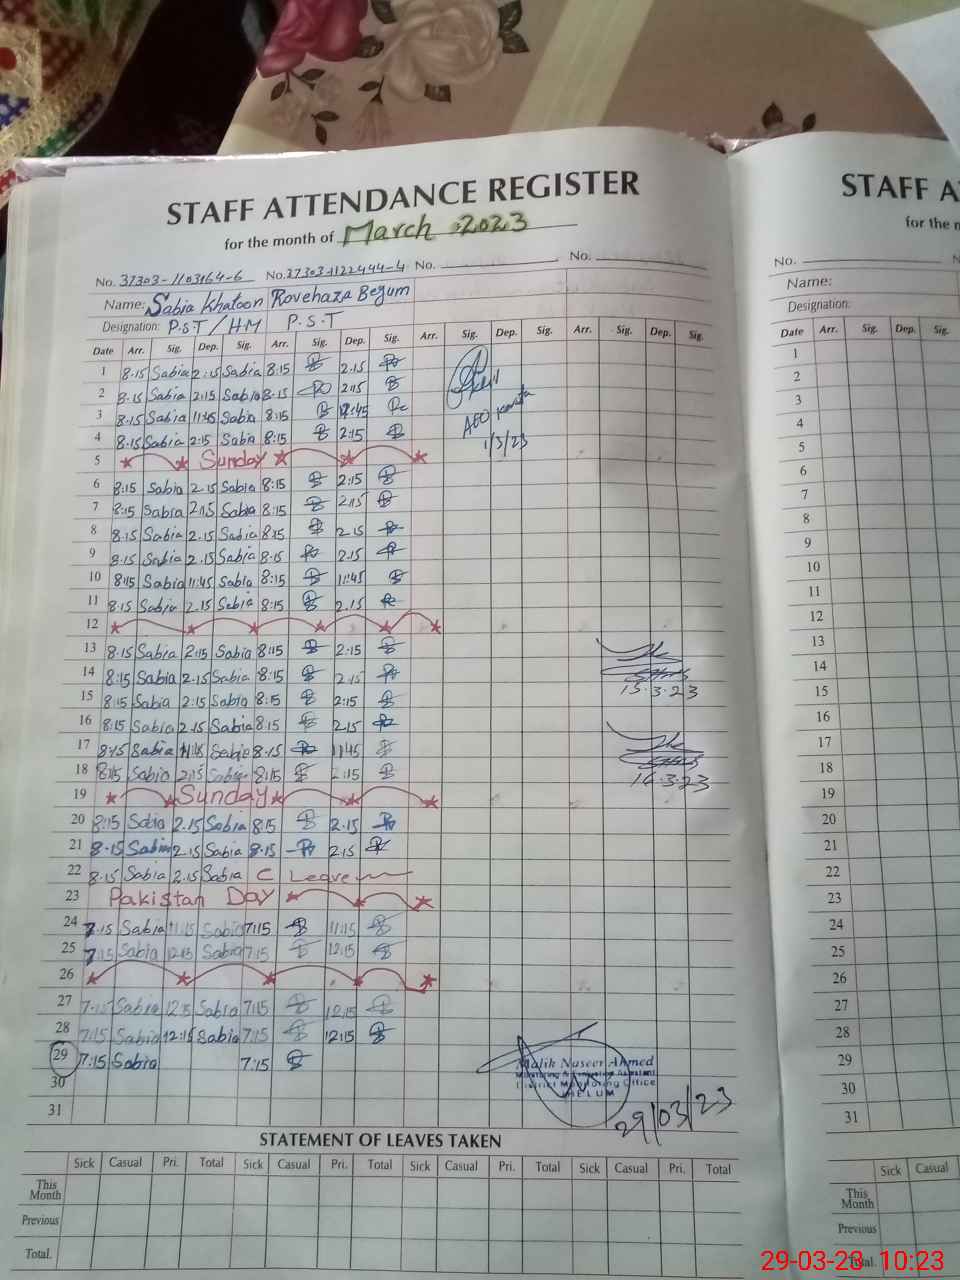 STAFF ATTENDANCE REGISTER
for the month of March 2023
No. 37303-1103164-6 No. 37303-1122444-4 No. No.
Name: Sabia Khatoon Rovehaza Begum
Designation: P.S.T / HM P.S.T
Date Arr. Sig. Dep. Sig. Arr. Sig. Dep. Sig. Arr. Sig. Dep. Sig. Arr. Sig. Dep. Sig.
1 8.15 Sabia 2.15 Sabia 8:15 2.15
2 8.15 Sabia 2:15 Sabia 8.15 2:15
3 8.15 Sabia 11:45 Sabia 8:15 12:45
4 8:15 Sabia 2:15 Sabia 8:15 2:15
AEO
1/3/23
5 Sunday
6 8:15 Sabia 2.15 Sabia 8:15 2:15
7 8:15 Sabia 2:15 Sabia 8:15 2:15
8 8.15 Sabia 2.15 Sabia 8:15 2.15
9 8:15 Sabia 2.15 Sabia 8.15 2.15
10 8:15 Sabia 11:45 Sabia 8:15 11:45
11 8.15 Sabia 2.15 Sabia 8:15 2.15
12
13 8.15 Sabia 2:15 Sabia 8:15 2:15
14 8:15 Sabia 2.15 Sabia 8:15 2.15
15 8:15 Sabia 2:15 Sabia 8:15 2:15
15.3.23
16 8:15 Sabia 2.15 Sabia 8.15 2.15
17 8:15 Sabia 11:45 Sabia 8.15 11:45
18 8:15 Sabia 2:15 Sabia 8:15 2:15
16.3.23
19 Sunday
20 8:15 Sabia 2.15 Sabia 8.15 2.15
21 8.15 Sabia 2.15 Sabia 8.15 2.15
22 8.15 Sabia 2.15 Sabia C Leave
23 Pakistan Day
24 7.15 Sabia 11:15 Sabia 7:15 11:15
25 7:15 Sabia 12:15 Sabia 7:15 12:15
26
27 7.15 Sabia 12:15 Sabia 7:15 12:15
28 7:15 Sabia 12:15 Sabia 7:15 12:15
29 7:15 Sabia 7:15
30
31
Malik Naseer Ahmed
Monitoring & Evaluation Assistant
District Monitoring Office
JHELUM
29/03/23
STATEMENT OF LEAVES TAKEN
Sick Casual Pri. Total Sick Casual Pri. Total Sick Casual Pri. Total Sick Casual Pri. Total
This Month
Previous
Total.
STAFF A
for the m
No.
Name:
Designation:
Date Arr. Sig. Dep. Sig.
1
2
3
4
5
6
7
8
9
10
11
12
13
14
15
16
17
18
19
20
21
22
23
24
25
26
27
28
29
30
31
Sick Casual
This Month
Previous
Total.
29-03-23 10:23